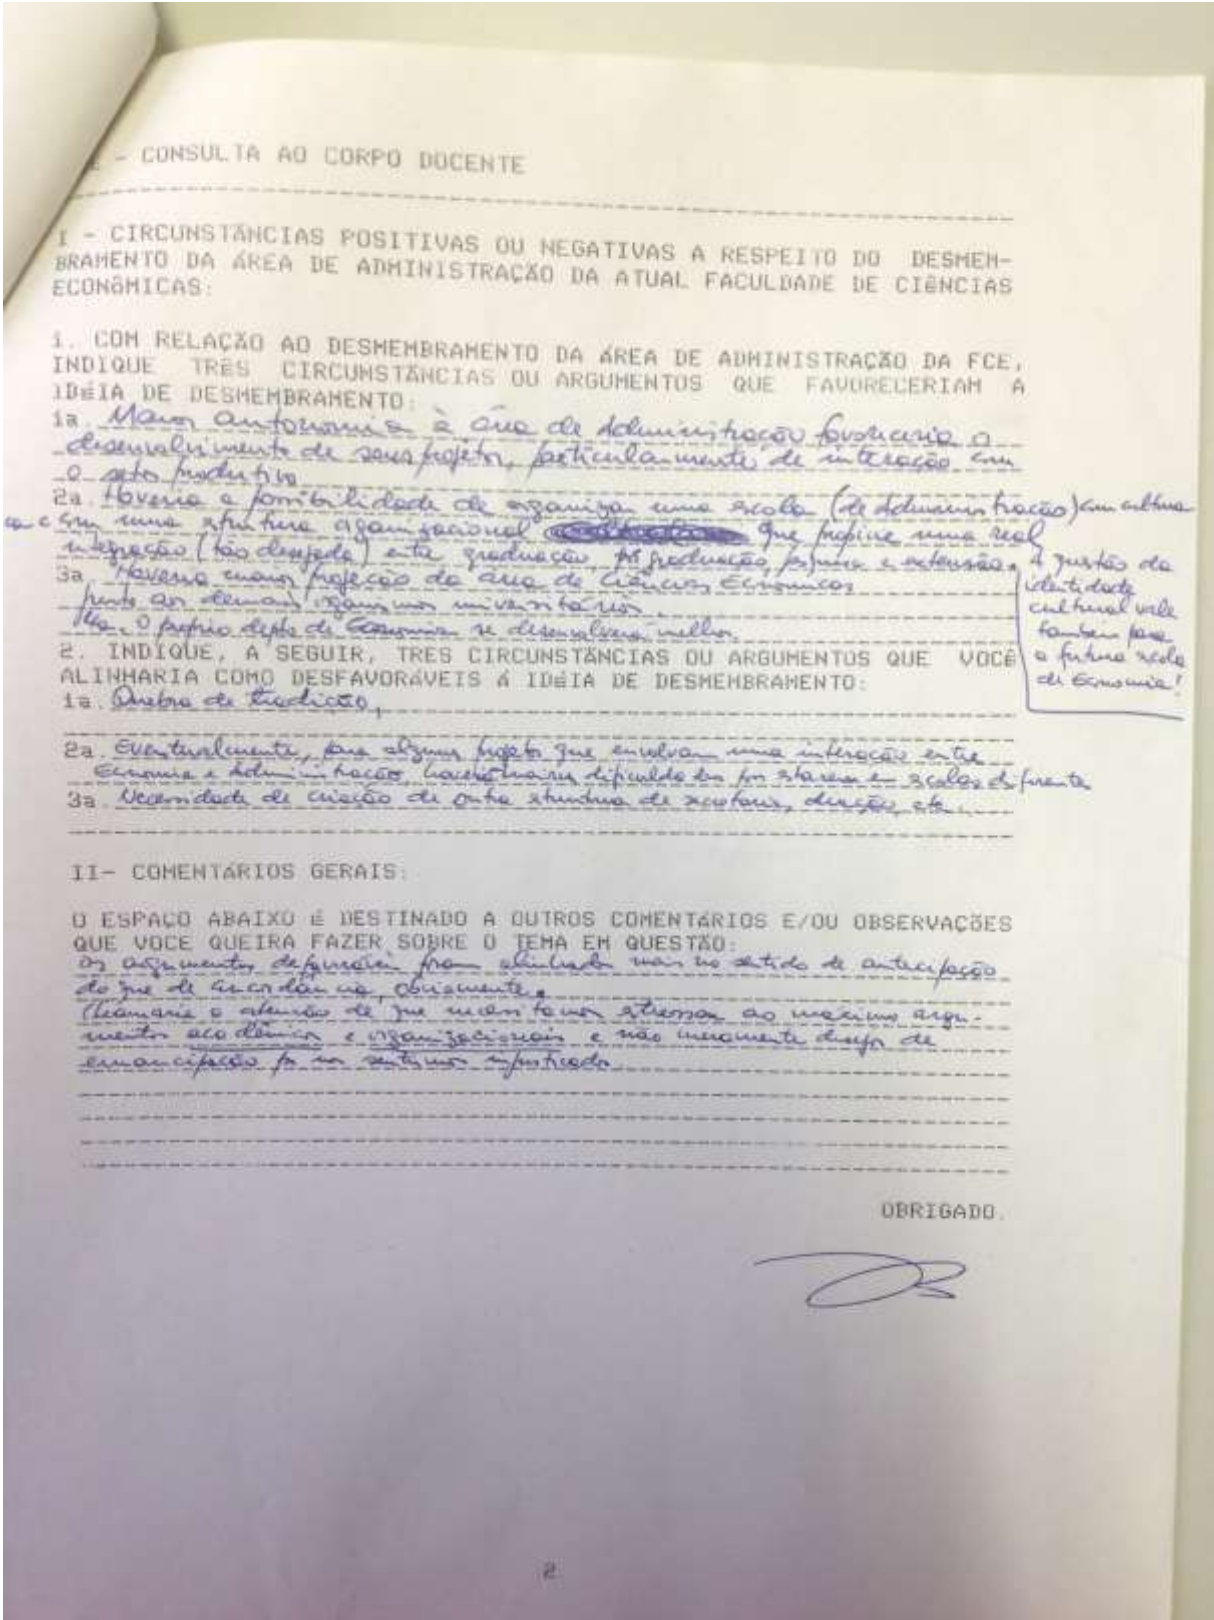 - CONSULTA AO CORPO DOCENTE
I - CIRCUNSTÂNCIAS POSITIVAS OU NEGATIVAS A RESPEITO DO DESMEM-
BRAMENTO DA ÁREA DE ADMINISTRAÇÃO DA ATUAL FACULDADE DE CIÊNCIAS
ECONÔMICAS:
1. COM RELAÇÃO AO DESMEMBRAMENTO DA ÁREA DE ADMINISTRAÇÃO DA FCE,
INDIQUE TRÊS CIRCUNSTÂNCIAS OU ARGUMENTOS QUE FAVORECERIAM A
IDÉIA DE DESMEMBRAMENTO:
1a. Maior autonomia à área de Administração favoreceria o
desenvolvimento de seus projetos, particularmente de interação com
o setor produtivo
2a. Haveria a possibilidade de organizar uma escola (de Administração) com cultura
e com uma estrutura organizacional que propicie uma real
integração (tão desejada) entre graduação, pós graduação, pesquisa e extensão.
3a. Haveria maior projeção da área de Ciências Econômicas
junto aos demais organismos universitários.
4a. O próprio depto de Economia se desenvolverá melhor.
A questão da
identidade
cultural vale
também para
a futura escola
de Economia!
2. INDIQUE, A SEGUIR, TRES CIRCUNSTÂNCIAS OU ARGUMENTOS QUE VOCÊ
ALINHARIA COMO DESFAVORÁVEIS Á IDÉIA DE DESMEMBRAMENTO:
1a. Quebra de tradição,
2a. Eventualmente, para alguns projetos que envolvam uma interação entre
Economia e Administração, dificuldades por estarem em escolas diferentes
3a. Necessidade de criação de outra estrutura de secretaria, direção, etc.
II- COMENTÁRIOS GERAIS:
O ESPAÇO ABAIXO É DESTINADO A OUTROS COMENTÁRIOS E/OU OBSERVAÇÕES
QUE VOCE QUEIRA FAZER SOBRE O TEMA EM QUESTÃO:
Os argumentos foram alinhados mais no sentido de antecipação
do que de concordância, obviamente.
Chamaria a atenção de que necessitamos stressar ao máximo argu-
mentos acadêmicos e organizacionais e não meramente desejos de
emancipação por nos sentirmos injustiçados
OBRIGADO.
2